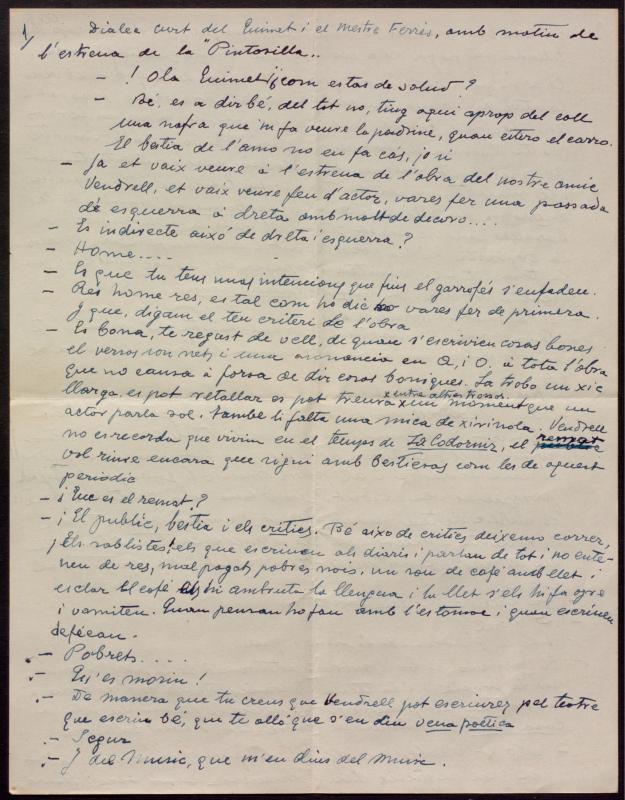 1/
Dialec curt del Quimet i el Mestre Ferrés, amb motiu de
l'estrena de la "Pintosilla..
- ! Ola Quimet ¡¿com estas de salud?
- Bé, es a dir bé, del tot no, ting aqui aprop del coll
una nafra que m fa veure la padrina, quan estiro el carro.
El bestia de l'amo no en fa cás, jo si
- Ja et vaix veure á l'estrena de l'obra del nostre amic
Vendrell, et vaix veure feu d'actor, vares fer una passada
de esguerra á dreta amb molt de decoro....
- Es indirecte aixó de dreta i esguerra?
- Home....
- Es que tu tens unas intencions que fins el garrofés s'enfaden.
- Res home res, es tal com ho dic vares fer de primera.
I que, digam el teu criteri de l'obra
- Es bona, te regust de vell, de quan s'escrivien cosas bones
el versos son nets, i una asonancia en Q, i O. á tota l'obra
que no causa á forsa de dir cosas boniques. La trobo un xic
llarga, es pot retallar es pot treure x en un moment que un
x entre altres trossos
actor parla sol. També li falta una mica de xirinola. Vendrell
no es recorda que vivim en el temps de La Codorniz, el remat
vol riure encara que sigui amb bestieses com les de aquest
periodic
- ¿Que es el remat?
- ¡El public, bestia i els critics. Bé aixo de critics deixemo correr,
¡Els sablistes! els que escriuen als diaris i parlan de tot i no ente-
nen de res, mal pagats pobres nois, un sou de café amb llet i
es clar el café els hi embruta la llengua i la llet s'els hi fa agre
i vomiten. Quan pensan ho fan amb l'estomac i quan escriuen
defecan.
- Pobrets....
- Qu'es morin!
- De manera que tu creus que Vendrell pot escriurer pel teatre
que escriu bé, que te alló que s'en diu vena poetica
- Segur
- I del Music, que m'en dius del Music.